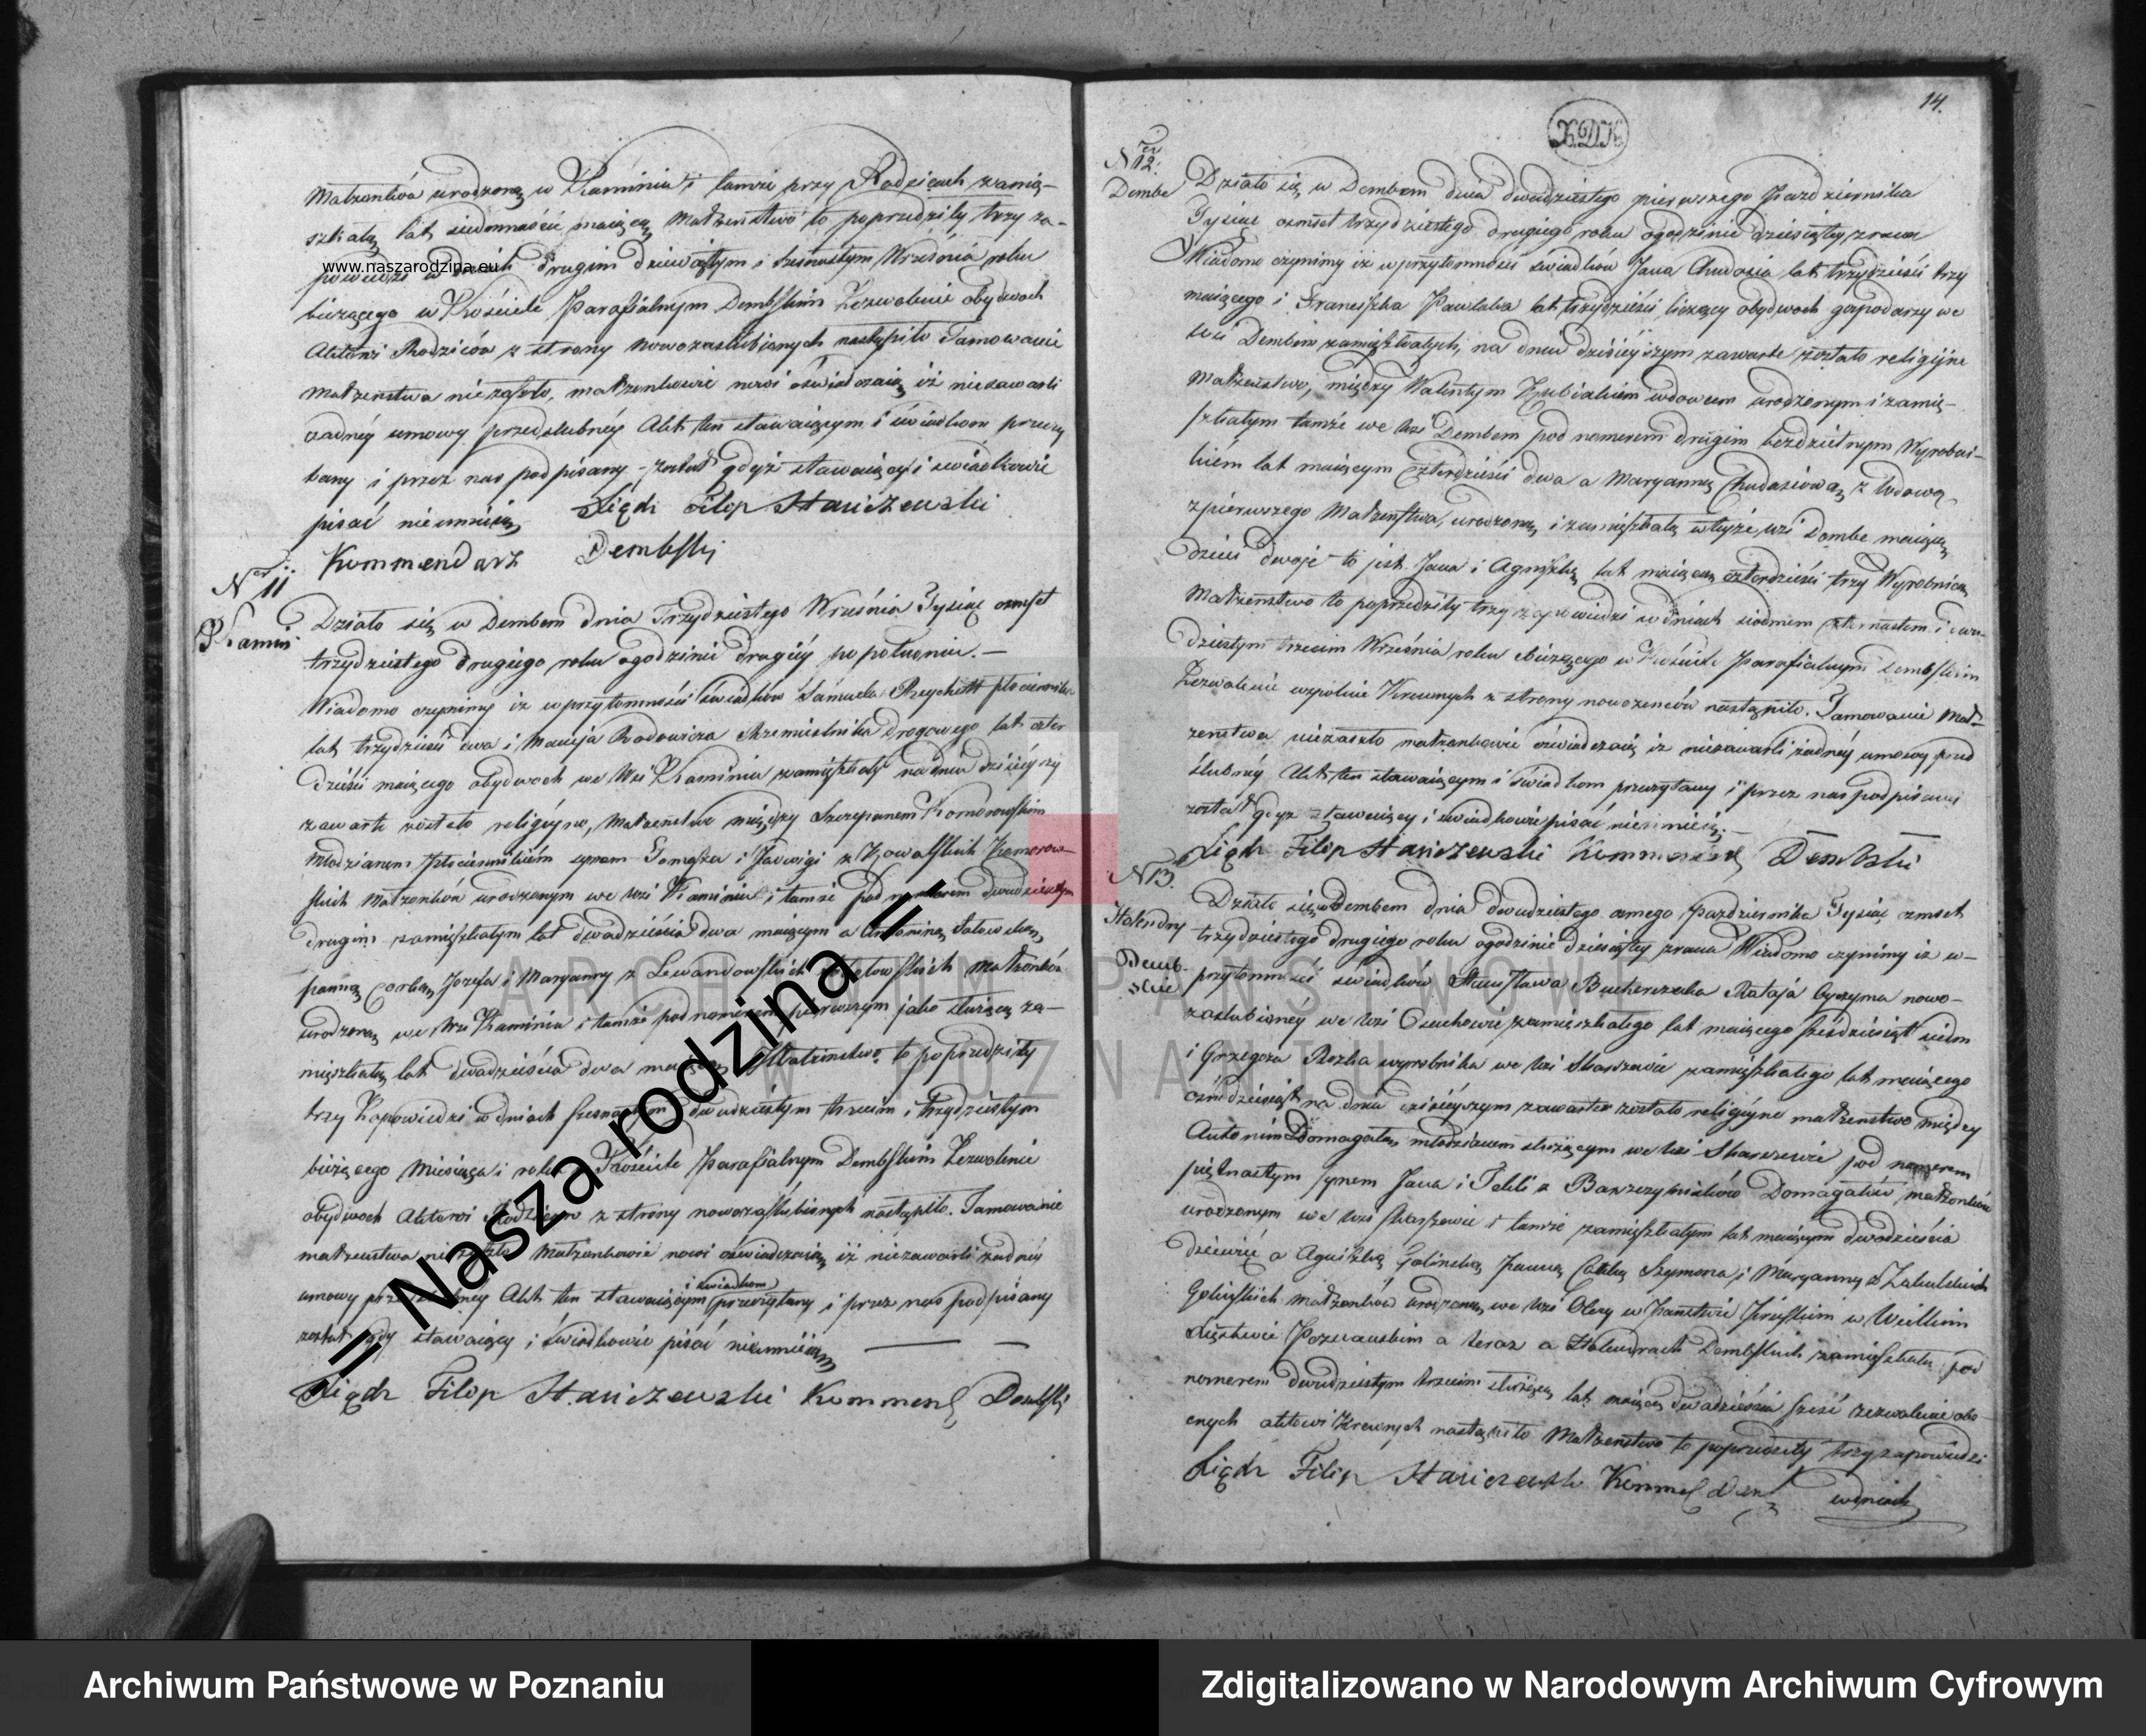 Małżonków urodzoną w Kaminiu i tamże przy Rodzicach zamię-
szkałą lat siedmnaście maiącą Małżeństwo to poprzedziły trzy za-
www.naszarodzina.eu
powiedzi w dniach drugim dziewiątym i szesnastym Września roku
bieżącego w Kościele Parafialnym Dembskim Zezwolenie obydwoch
Aktowi Rodziców z strony nowozaślubionych nastąpiło Tamowanie
Małżeństwa niezaszło, małżonkowie nowi oświadczaią iż niezawarli
żadnéy umowy przedślubnéy Akt ten stawaiącym i świadkom przeczy
tany i przez nas podpisany został gdyż stawaiący i świadkowie
pisać nieumieią Xiądz Filip Staniszewski
Kommendarz Dembski
Ner 11
Kamin
Działo się w Dembem dnia Trzydziestego Września Tysiąc ośmset
trzydziestego drugiego roku o godzinie drugiéy po południu. —
Wiadomo czyniemy iż w przytomności świadków Samuela
lat trzydzieści dwa i Macieja Radowicza Rzemieślnika Drogowego lat czter
dzieści maiącego obydwoch we Wsi Kaminiu zamięszkały na dniu dzisieyszy
zawarte zostało religiyne, Małżeństwo między Szczepanem Komorowskim
Młodzianem synem Tomasza i Jadwigi z Kowalskich Komorow-
skich Małżonków urodzonym we wsi Kaminiu i tamże pod numerem dwudziestym
drugim zamięszkałym lat dwadzieścia dwa maiącym a Antoniną
panną corką Jozefa i Maryanny z Lewandowskich Małżonków
urodzoną we Wsi Kaminiu i tamże pod numerem pierwszym jako służącą za-
mięszkałą lat dwadzieścia dwa maiącą Małżeństwo to poprzedziły
trzy Zapowiedzi w dniach szesnastym dwudziestym trzecim i Trzydziestym
bieżącego Miesiąca i roku w Kościele Parafialnym Dembskim Zezwolenie
obydwoch Aktowi Rodziców z strony nowozaślubionych nastąpiło. Tamowanie
małżeństwa niezaszło Małżonkowie nowi oświadczaią iż niezawarli żadnéy
i świadkom
umowy przedślubney Akt ten stawaiącym przeczytany i przez nas podpisany
został gdy stawaiący i świadkowie pisać nieumieią
Xiądz Filip Staniszewski Kommend Dembski
= Nasza rodzina =
14.
K.D.K.
Ner 12.
Dembe
Działo się w Dembem dnia dwudziestego pierwszego Pazdziernika
Tysiąc ośmset trzydziestego drugiego roku o godzinie dziesiątey zrana
Wiadomo czynimy iż w przytomności świadków Jana Chudasia lat trzydzieści trzy
maiącego i Franciszka Pawlaka lat trzydzieści liczący obydwoch gospodarzy we
wsi Dembem zamięszkałych, na dniu dzisieyszym zawarte zostało religiyne
Małżeństwo, między Walentym Zubiakiem wdowcem urodzonym i zamię-
szkałym tamże we wsi Dembem pod numerem drugim bezdzietnym Wyrobni-
kiem lat maiącym czterdzieści dwa a Maryanną Chudasiową z Wdową
z pierwszego Małżeństwa, urodzoną i zamięszkałą w teyże wsi Dembe maiącą
dzieci dwoje to jest Jana i Agniszkę lat maiącą czterdzieści trzy Wyrobnicą
Małżeństwo to poprzedziły trzy zapowiedzi w dniach siodmem czternastem i dwu-
dziestym trzecim Września roku bieżącego w Kościele Parafialnym Dembskim
Zezwolenie wspolnie Krewnych z strony nowożeńców nastąpiło. Tamowanie Mał-
żeństwa niezaszło małżonkowie oświadczaią iż niezawarli żadnéy umowy przed
ślubnéy Akt ten stawaiącym i świadkom przeczytany i przez nas podpisany
został gdyż stawaiący i świadkowie pisać nieumieią. —
Xiądz Filip Staniszewski Kommend Dembski
N 13.
Holendry
Demb-
skie
Działo się w Dembem dnia dwudziestego osmego Pazdziernika Tysiąc ośmset
trzydziestego drugiego roku o godzinie dziesiątey zrana Wiadomo czynimy iż w-
przytomność świadków Stanisława Rataja Oyczyma nowo-
zaślubionéy we wsi zamieszkałego lat maiącego sześćdziesiąt siedm
i Grzegorza wyrobnika we wsi Skarszewie zamięszkałego lat maiącego
ośmdziesiąt na dniu dzisieyszym zawarte zostało religiyne małżeństwo między
Antonim Domagałą młodzianem służącym we wsi Skarszewie pod numerem
piętnastym synem Jana i Tekli z Domagałów małżonków
urodzonym we wsi Skarszewie i tamże zamięszkałym lat maiącym dwadzieścia
dziewięć a Agniszką Golinską Panną Corką Szymona i Maryanny z
Golińskich małżonków urodzoną we wsi w Państwie Pruskim w Wielkim
Xięstwie Poznanskim a teraz a Holendrach Dembskich zamięszkałą pod
numerem dwudziestym trzecim służącą lat maiącą dwadzieścia sześć zezwolenie obe-
cnych aktowi Krewnych nastąpiło Małżeństwo to poprzedziły trzy zapowiedzi
Xiądz Filip Staniszewski Kommend Dem wdniach
ARCHIWUM PAŃSTWOWE
W POZNANIU
Archiwum Państwowe w Poznaniu
Zdigitalizowano w Narodowym Archiwum Cyfrowym